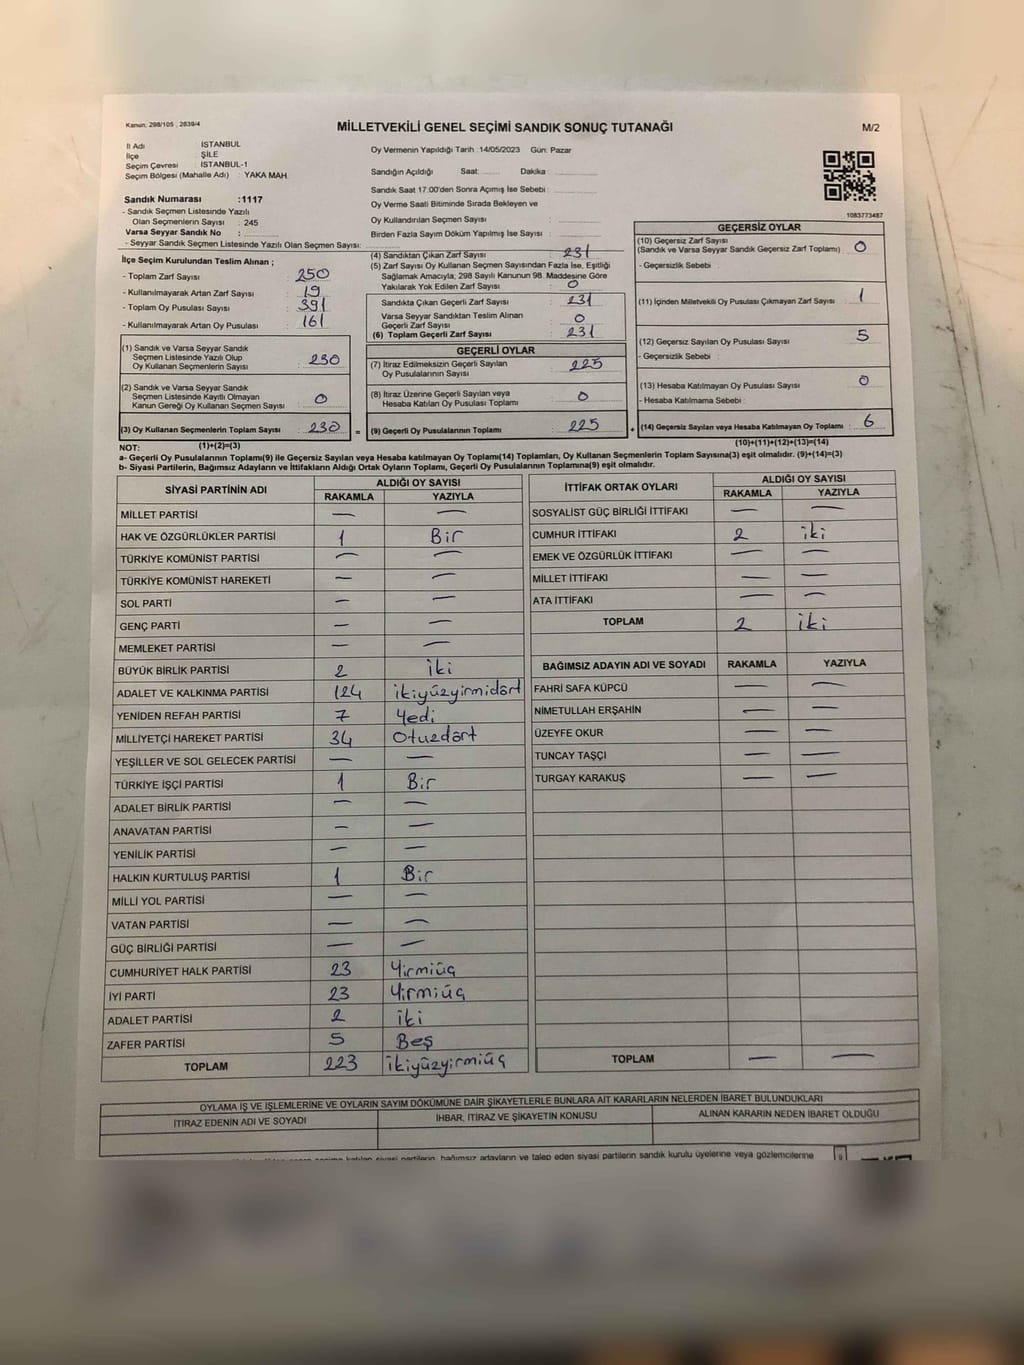 Kanun, 298/105 , 2839/4
MİLLETVEKİLİ GENEL SEÇİMİ SANDIK SONUÇ TUTANAĞI
M/2
İl Adı İSTANBUL
İlçe ŞİLE
Seçim Çevresi İSTANBUL-1
Seçim Bölgesi (Mahalle Adı) : YAKA MAH.
Oy Vermenin Yapıldığı Tarih : 14/05/2023 Gün: Pazar
Sandığın Açıldığı Saat: Dakika :
Sandık Saat 17:00'den Sonra Açımış İse Sebebi :
Oy Verme Saati Bitiminde Sırada Bekleyen ve
Oy Kullandırılan Seçmen Sayısı :
Birden Fazla Sayım Döküm Yapılmış İse Sayısı :
1083773487
Sandık Numarası :1117
- Sandık Seçmen Listesinde Yazılı
Olan Seçmenlerin Sayısı : 245
Varsa Seyyar Sandık No :
- Seyyar Sandık Seçmen Listesinde Yazılı Olan Seçmen Sayısı:
İlçe Seçim Kurulundan Teslim Alınan ;
- Toplam Zarf Sayısı : 250
- Kullanılmayarak Artan Zarf Sayısı : 19
- Toplam Oy Pusulası Sayısı : 391
- Kullanılmayarak Artan Oy Pusulası : 161
(1) Sandık ve Varsa Seyyar Sandık
Seçmen Listesinde Yazılı Olup
Oy Kullanan Seçmenlerin Sayısı : 230
(2) Sandık ve Varsa Seyyar Sandık
Seçmen Listesinde Kayıtlı Olmayan
Kanun Gereği Oy Kullanan Seçmen Sayısı : 0
(3) Oy Kullanan Seçmenlerin Toplam Sayısı : 230 =
(4) Sandıktan Çıkan Zarf Sayısı : 231
(5) Zarf Sayısı Oy Kullanan Seçmen Sayısından Fazla İse, Eşitliği
Sağlamak Amacıyla; 298 Sayılı Kanunun 98. Maddesine Göre
Yakılarak Yok Edilen Zarf Sayısı : 0
Sandıkta Çıkan Geçerli Zarf Sayısı : 231
Varsa Seyyar Sandıktan Teslim Alınan
Geçerli Zarf Sayısı : 0
(6) Toplam Geçerli Zarf Sayısı : 231
GEÇERLİ OYLAR
(7) İtiraz Edilmeksizin Geçerli Sayılan
Oy Pusulalarının Sayısı : 225
(8) İtiraz Üzerine Geçerli Sayılan veya
Hesaba Katılan Oy Pusulası Toplamı : 0
(9) Geçerli Oy Pusulalarının Toplamı : 225 +
GEÇERSİZ OYLAR
(10) Geçersiz Zarf Sayısı
(Sandık ve Varsa Seyyar Sandık Geçersiz Zarf Toplamı) : 0
- Geçersizlik Sebebi :
(11) İçinden Milletvekili Oy Pusulası Çıkmayan Zarf Sayısı : 1
(12) Geçersiz Sayılan Oy Pusulası Sayısı : 5
- Geçersizlik Sebebi :
(13) Hesaba Katılmayan Oy Pusulası Sayısı : 0
- Hesaba Katılmama Sebebi :
(14) Geçersiz Sayılan veya Hesaba Katılmayan Oy Toplamı : 6
NOT: (1)+(2)=(3) (10)+(11)+(12)+(13)=(14)
a- Geçerli Oy Pusulalarının Toplamı(9) ile Geçersiz Sayılan veya Hesaba Katılmayan Oy Toplamı(14) Toplamları, Oy Kullanan Seçmenlerin Toplam Sayısına(3) eşit olmalıdır. (9)+(14)=(3)
b- Siyasi Partilerin, Bağımsız Adayların ve İttifakların Aldığı Ortak Oyların Toplamı, Geçerli Oy Pusulalarının Toplamına(9) eşit olmalıdır.
SİYASİ PARTİNİN ADI ALDIĞI OY SAYISI
RAKAMLA YAZIYLA
MİLLET PARTİSİ — —
HAK VE ÖZGÜRLÜKLER PARTİSİ 1 Bir
TÜRKİYE KOMÜNİST PARTİSİ — —
TÜRKİYE KOMÜNİST HAREKETİ — —
SOL PARTİ — —
GENÇ PARTİ — —
MEMLEKET PARTİSİ — —
BÜYÜK BİRLİK PARTİSİ 2 iki
ADALET VE KALKINMA PARTİSİ 124 ikiyüzyirmidört
YENİDEN REFAH PARTİSİ 7 Yedi
MİLLİYETÇİ HAREKET PARTİSİ 34 Otuzdört
YEŞİLLER VE SOL GELECEK PARTİSİ — —
TÜRKİYE İŞÇİ PARTİSİ 1 Bir
ADALET BİRLİK PARTİSİ — —
ANAVATAN PARTİSİ — —
YENİLİK PARTİSİ — —
HALKIN KURTULUŞ PARTİSİ 1 Bir
MİLLİ YOL PARTİSİ — —
VATAN PARTİSİ — —
GÜÇ BİRLİĞİ PARTİSİ — —
CUMHURİYET HALK PARTİSİ 23 Yirmiüç
İYİ PARTİ 23 Yirmiüç
ADALET PARTİSİ 2 iki
ZAFER PARTİSİ 5 Beş
TOPLAM 223 ikiyüzyirmiüç
İTTİFAK ORTAK OYLARI ALDIĞI OY SAYISI
RAKAMLA YAZIYLA
SOSYALİST GÜÇ BİRLİĞİ İTTİFAKI — —
CUMHUR İTTİFAKI 2 iki
EMEK VE ÖZGÜRLÜK İTTİFAKI — —
MİLLET İTTİFAKI — —
ATA İTTİFAKI — —
TOPLAM 2 iki
BAĞIMSIZ ADAYIN ADI VE SOYADI RAKAMLA YAZIYLA
FAHRİ SAFA KÜPCÜ — —
NİMETULLAH ERŞAHİN — —
ÜZEYFE OKUR — —
TUNCAY TAŞÇI — —
TURGAY KARAKUŞ — —
TOPLAM — —
OYLAMA İŞ VE İŞLEMLERİNE VE OYLARIN SAYIM DÖKÜMÜNE DAİR ŞİKAYETLERLE BUNLARA AİT KARARLARIN NELERDEN İBARET BULUNDUKLARI
İTİRAZ EDENİN ADI VE SOYADI İHBAR, İTİRAZ VE ŞİKAYETİN KONUSU ALINAN KARARIN NEDEN İBARET OLDUĞU
seçime katılan siyasi partilerin, bağımsız adayların ve talep eden siyasi partilerin sandık kurulu üyelerine veya gözlemcilerine